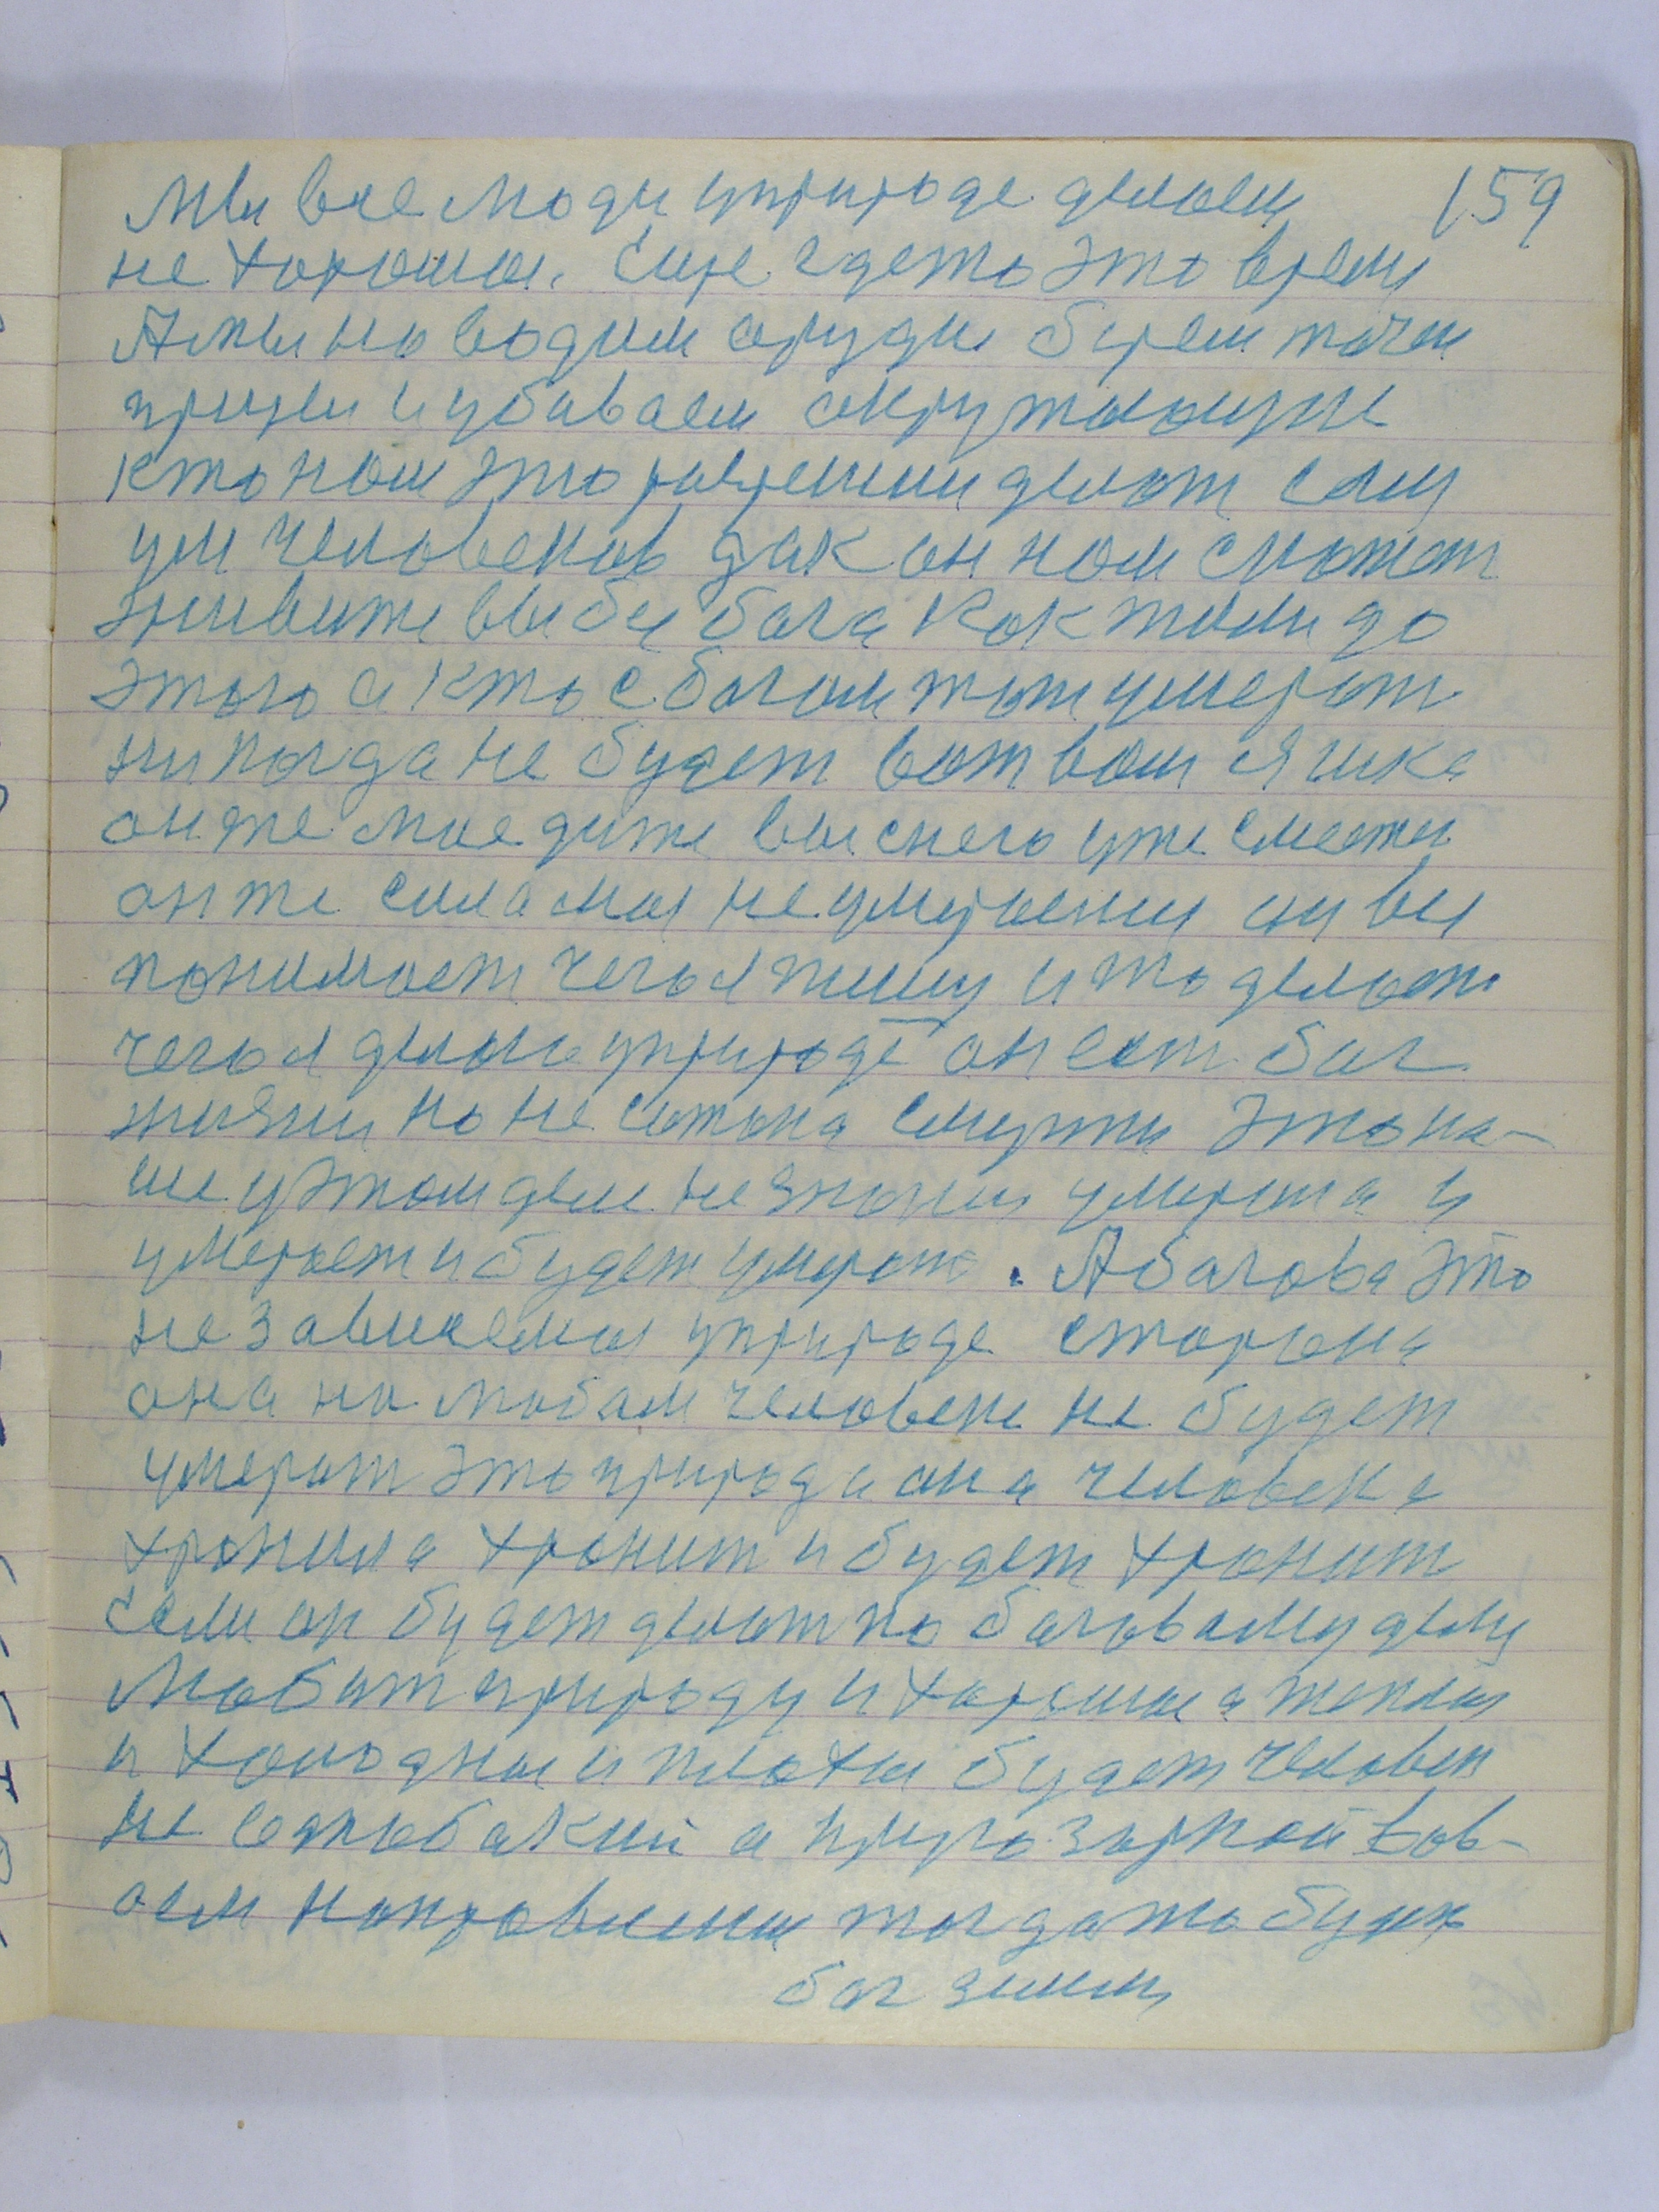 159
Мы все люди уприроде делаем
не хорошое. Еще гдето это время
А мы но водим орудие берем точем
прицел и убиваем окружающие
кто нам это розрешил делат саму
ум человеков дак он нам сможет
живите вы бе бога как жили до
этого а кто с богом тот умерат
ни когда не будет вот вам я шка
он же мое дите вы снего уже смотри
он же сила моя не умераемая вы
понимает чего я пишу и то делает
чего я делаю уприроде он ест бог
жизни но не сотона смерти Это на-
ше у этом деле незнания умерша и
умерает и будет умерат. А богова это
не зависемая уприроде сторона
она на любом человеке не будет
умерат это природа она человека
хронила хронит и будет хронит
Если он будет делат по боговому делу
Любит природу и хорошое а теплая
и холодная и плохая будет человек
не
аем направлении тогда то будет
бог земли